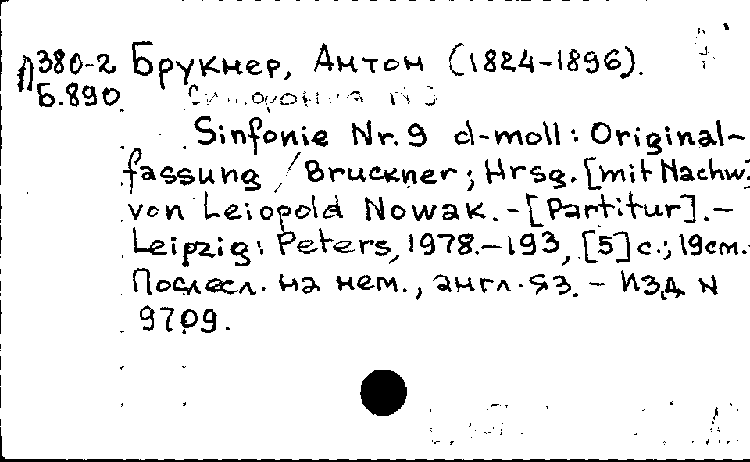 П380-2 Брукнер, Антон (1824-1896).
Б.890
Симфония N 9
Sinfonie Nr. 9 d-moll: Original-
fassung / Bruckner; Hrsg. [mit Nachw.]
von Leiopold Nowak. - [Partitur]. -
Leipzig: Peters, 1978. - 193, [5] с.; 19см. -
Послесл. на нем., англ. яз. - Изд. N
9709.